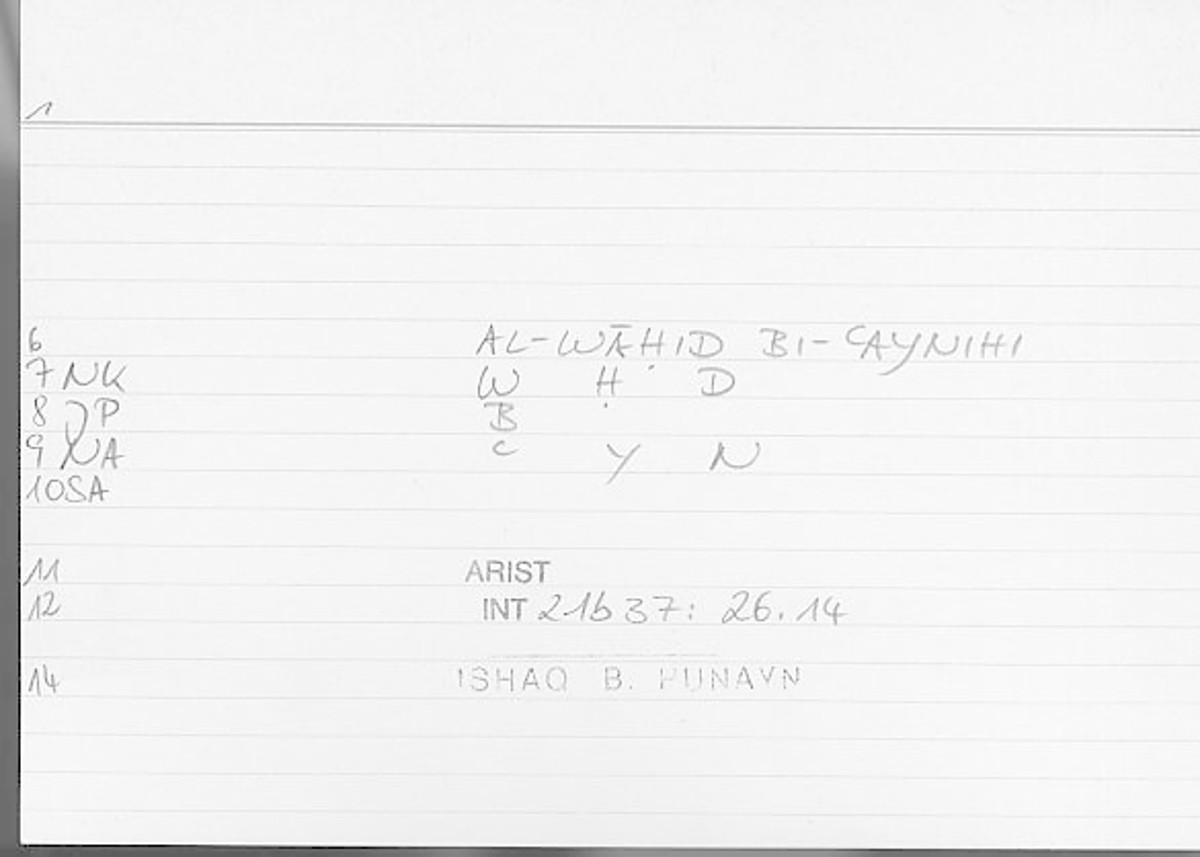 1
6 AL-WĀḤID BI-ʿAYNIHI
7 NK W Ḥ D
8 JP B
9 NA ʿ Y N
10 SA
11 ARIST
12 INT 21b 37: 26.14
14 ISHAQ B. HUNAYN